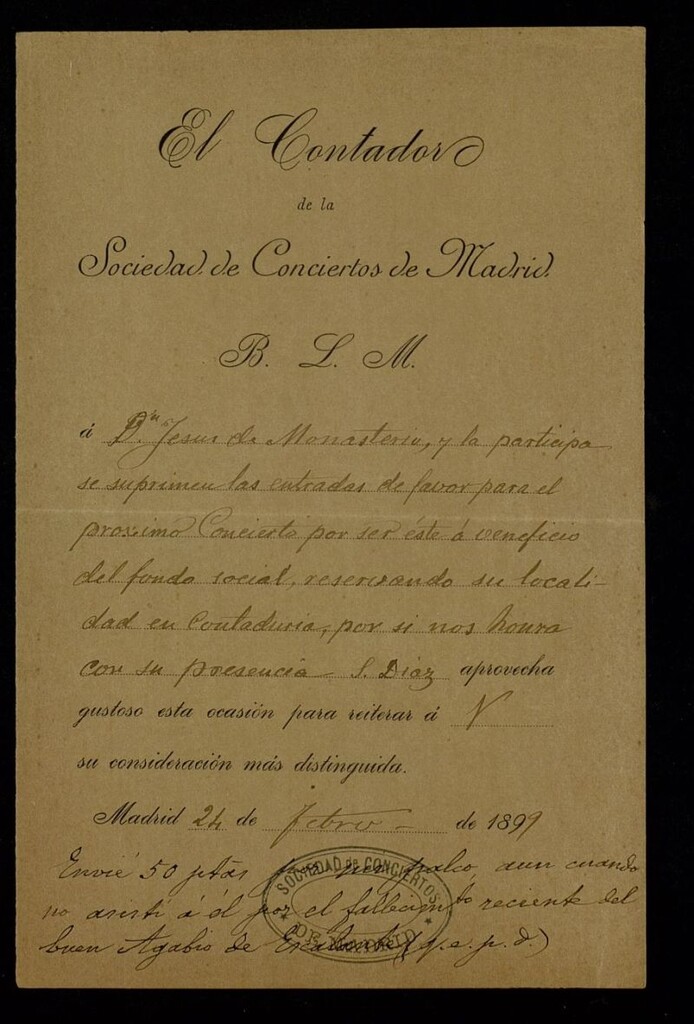 El Contador
de la
Sociedad de Conciertos de Madrid.
B. L. M.
á D.n Jesus de Monasterio, y la participa
se suprimen las entradas de favor para el
proximo Concierto por ser éste á veneficio
del fondo social, reservando su locali-
dad en Contaduria, por si nos honra
con su presencia - S. Diaz aprovecha
gustoso esta ocasión para reiterar á V
su consideración más distinguida.
Madrid 24 de Febro - de 1899
Envié 50 ptas palco, aun cuando
no asistí á él por el fallecimto reciente del
buen Agabio de Escalante (q.e.p.d.)
SOCIEDAD DE CONCIERTOS
* DE MADRID *